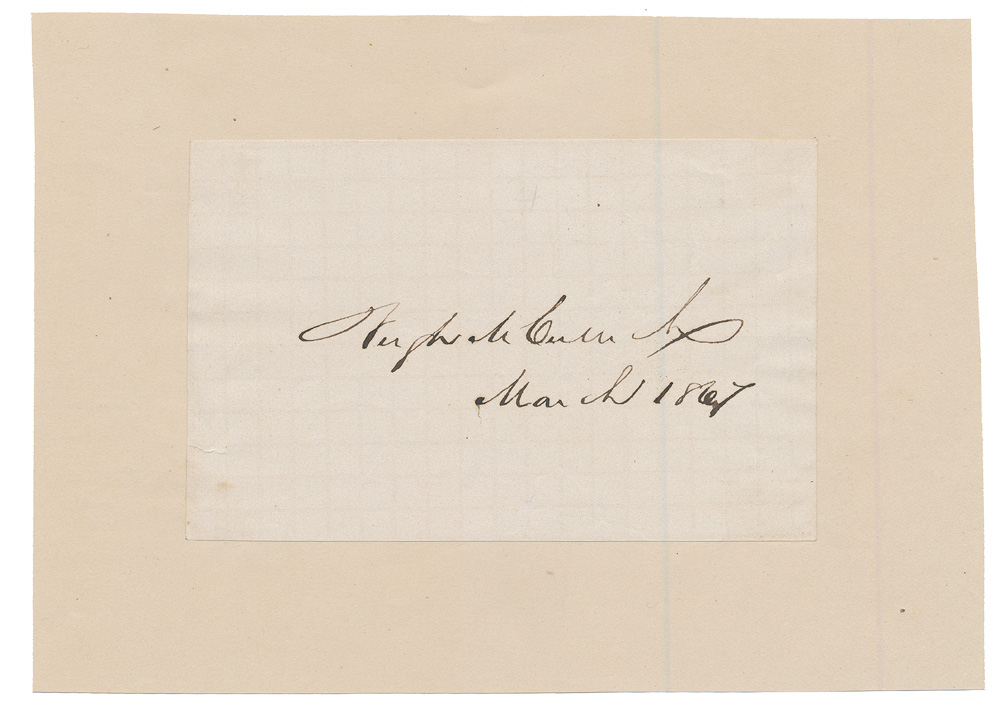 Hugh McCulloch
March 1867